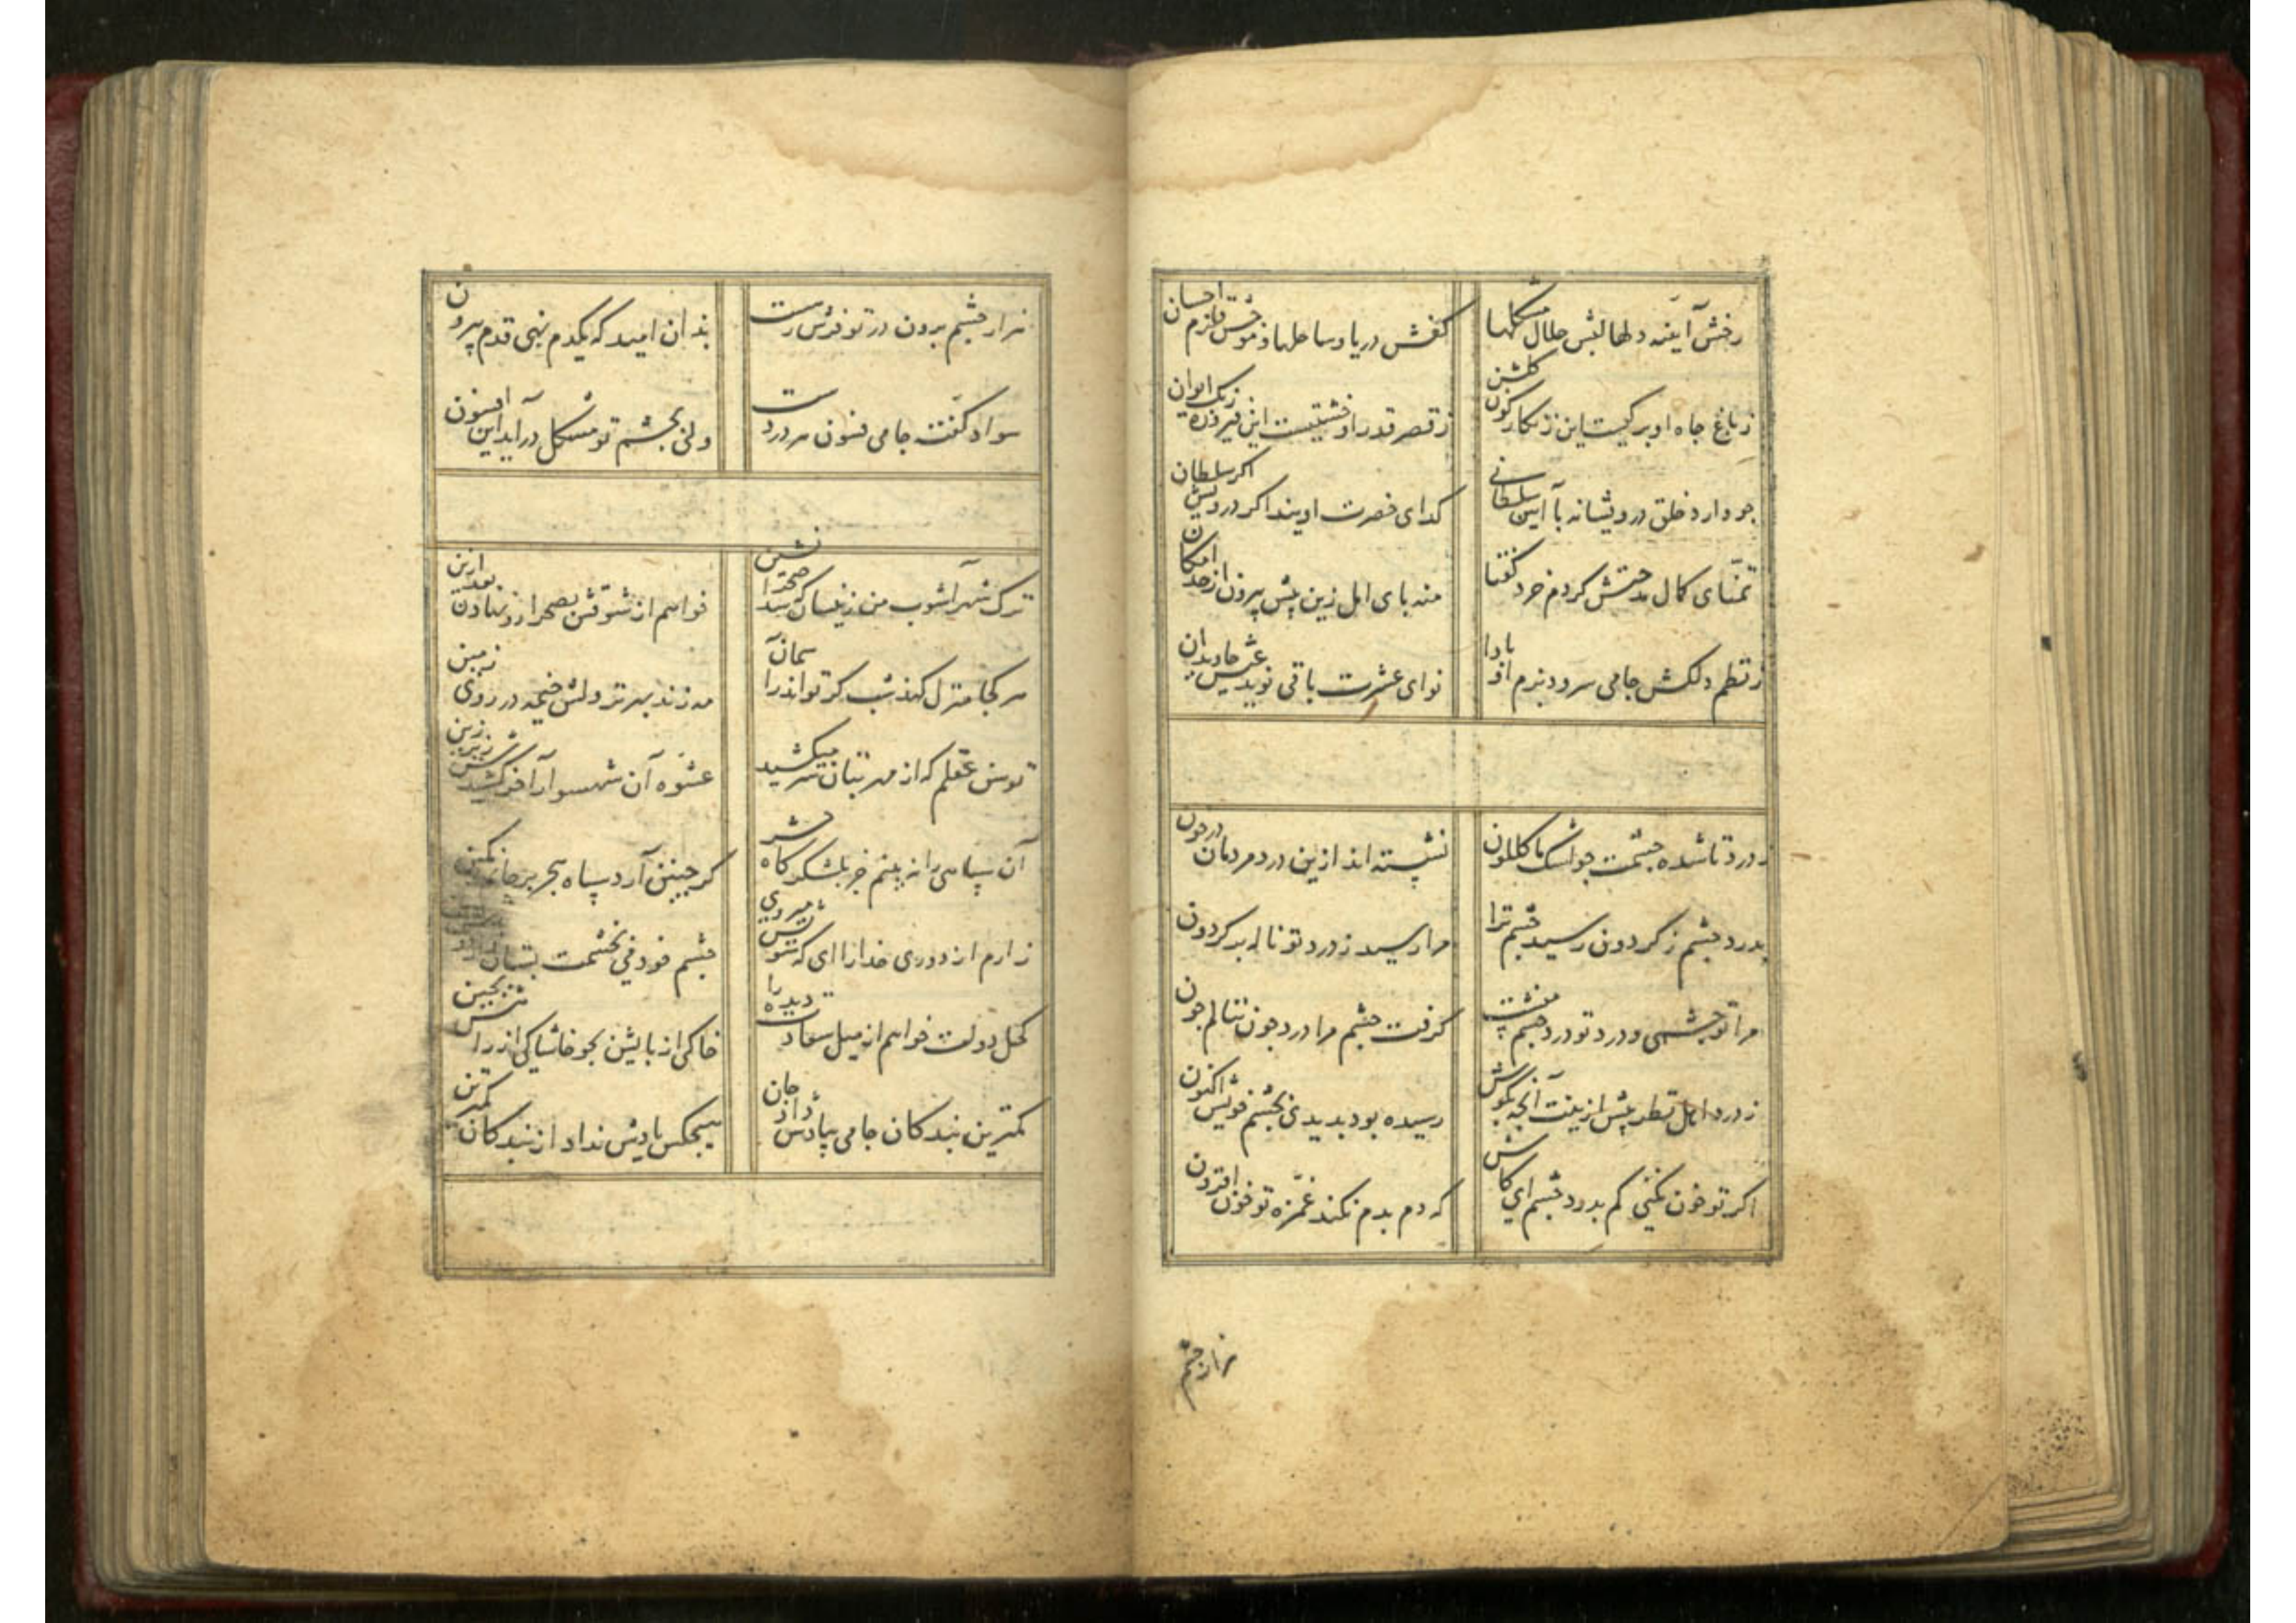 رخش آینه دلها لبش حلال مشکلها
کفش دریا و ساحلها ز موجش قلزم احسان
ز باغ جاه او برکیست این زنکارکون کلشن
ز قصر قدر او خشتیست این فیروزه رنک ایوان
جو دارد خلق درویشانه با آیین سلطانی
کدای حضرت اویند اکر درویش اکر سلطان
تمنای کمال مدحتش کردم خرد کفتا
منه بای امل زین پیش بیرون از حد امکان
ز نظم دلکش جامی سرود بزم او بادا
نوای عشرت باقی نوید عیش جاویدان
ز درد تا شده جشمت جو اشک ما کلکون
نشسته اند ازین درد مردمان در خون
بدرد جشم ز کردون رسید جشم ترا
مرا رسید ز درد تو ناله بر کردون
مرا تو جشمی و درد تو درد جشم منست
کرفت جشم مرا درد جون ننالم جون
ز درد اهل نظر پیش ازینت آنجه بکوش
رسیده بود بدیدی بجشم خویش اکنون
اکر تو خون نکنی کم بدرد جشم ای کاش
که دم بدم نکند غمزه تو خون افزون
هزار جشم
هزار جشم برون در تو فرش رهست
بدان امید که یکدم نهی قدم بیرون
سواد کفته جامی فسون هر دردست
ولی بجشم تو مشکل در آید این افسون
ترک شهرآشوب من زینسان که شد صحرا نشین
خواهم از شوقش بصحرا رو نهادن بعد ازین
هر کجا منزل کند شب کر تواند از آسمان
مه زند بهر نزولش خیمه در روی زمین
توسن عقلم که از مهر بتان سر میکشید
عشوه آن شهسوار آخر کشیدش زیر زین
آن سپاهی را نه بینم جز بلشکرکاه حشر
کر جنین آرد سپاه هجر بر جانم کمین
زارم از دوری خدارا ای که سویش میروی
جشم خود فی بخشمت بستان
کحل دولت خواهم از میل سعادت دیده را
خاکی از پایش بجو خاشاکی از راهش بجین
کمترین بندکان جامی بیادش داد جان
هیجکس یادش نداد از بندکان کمترین